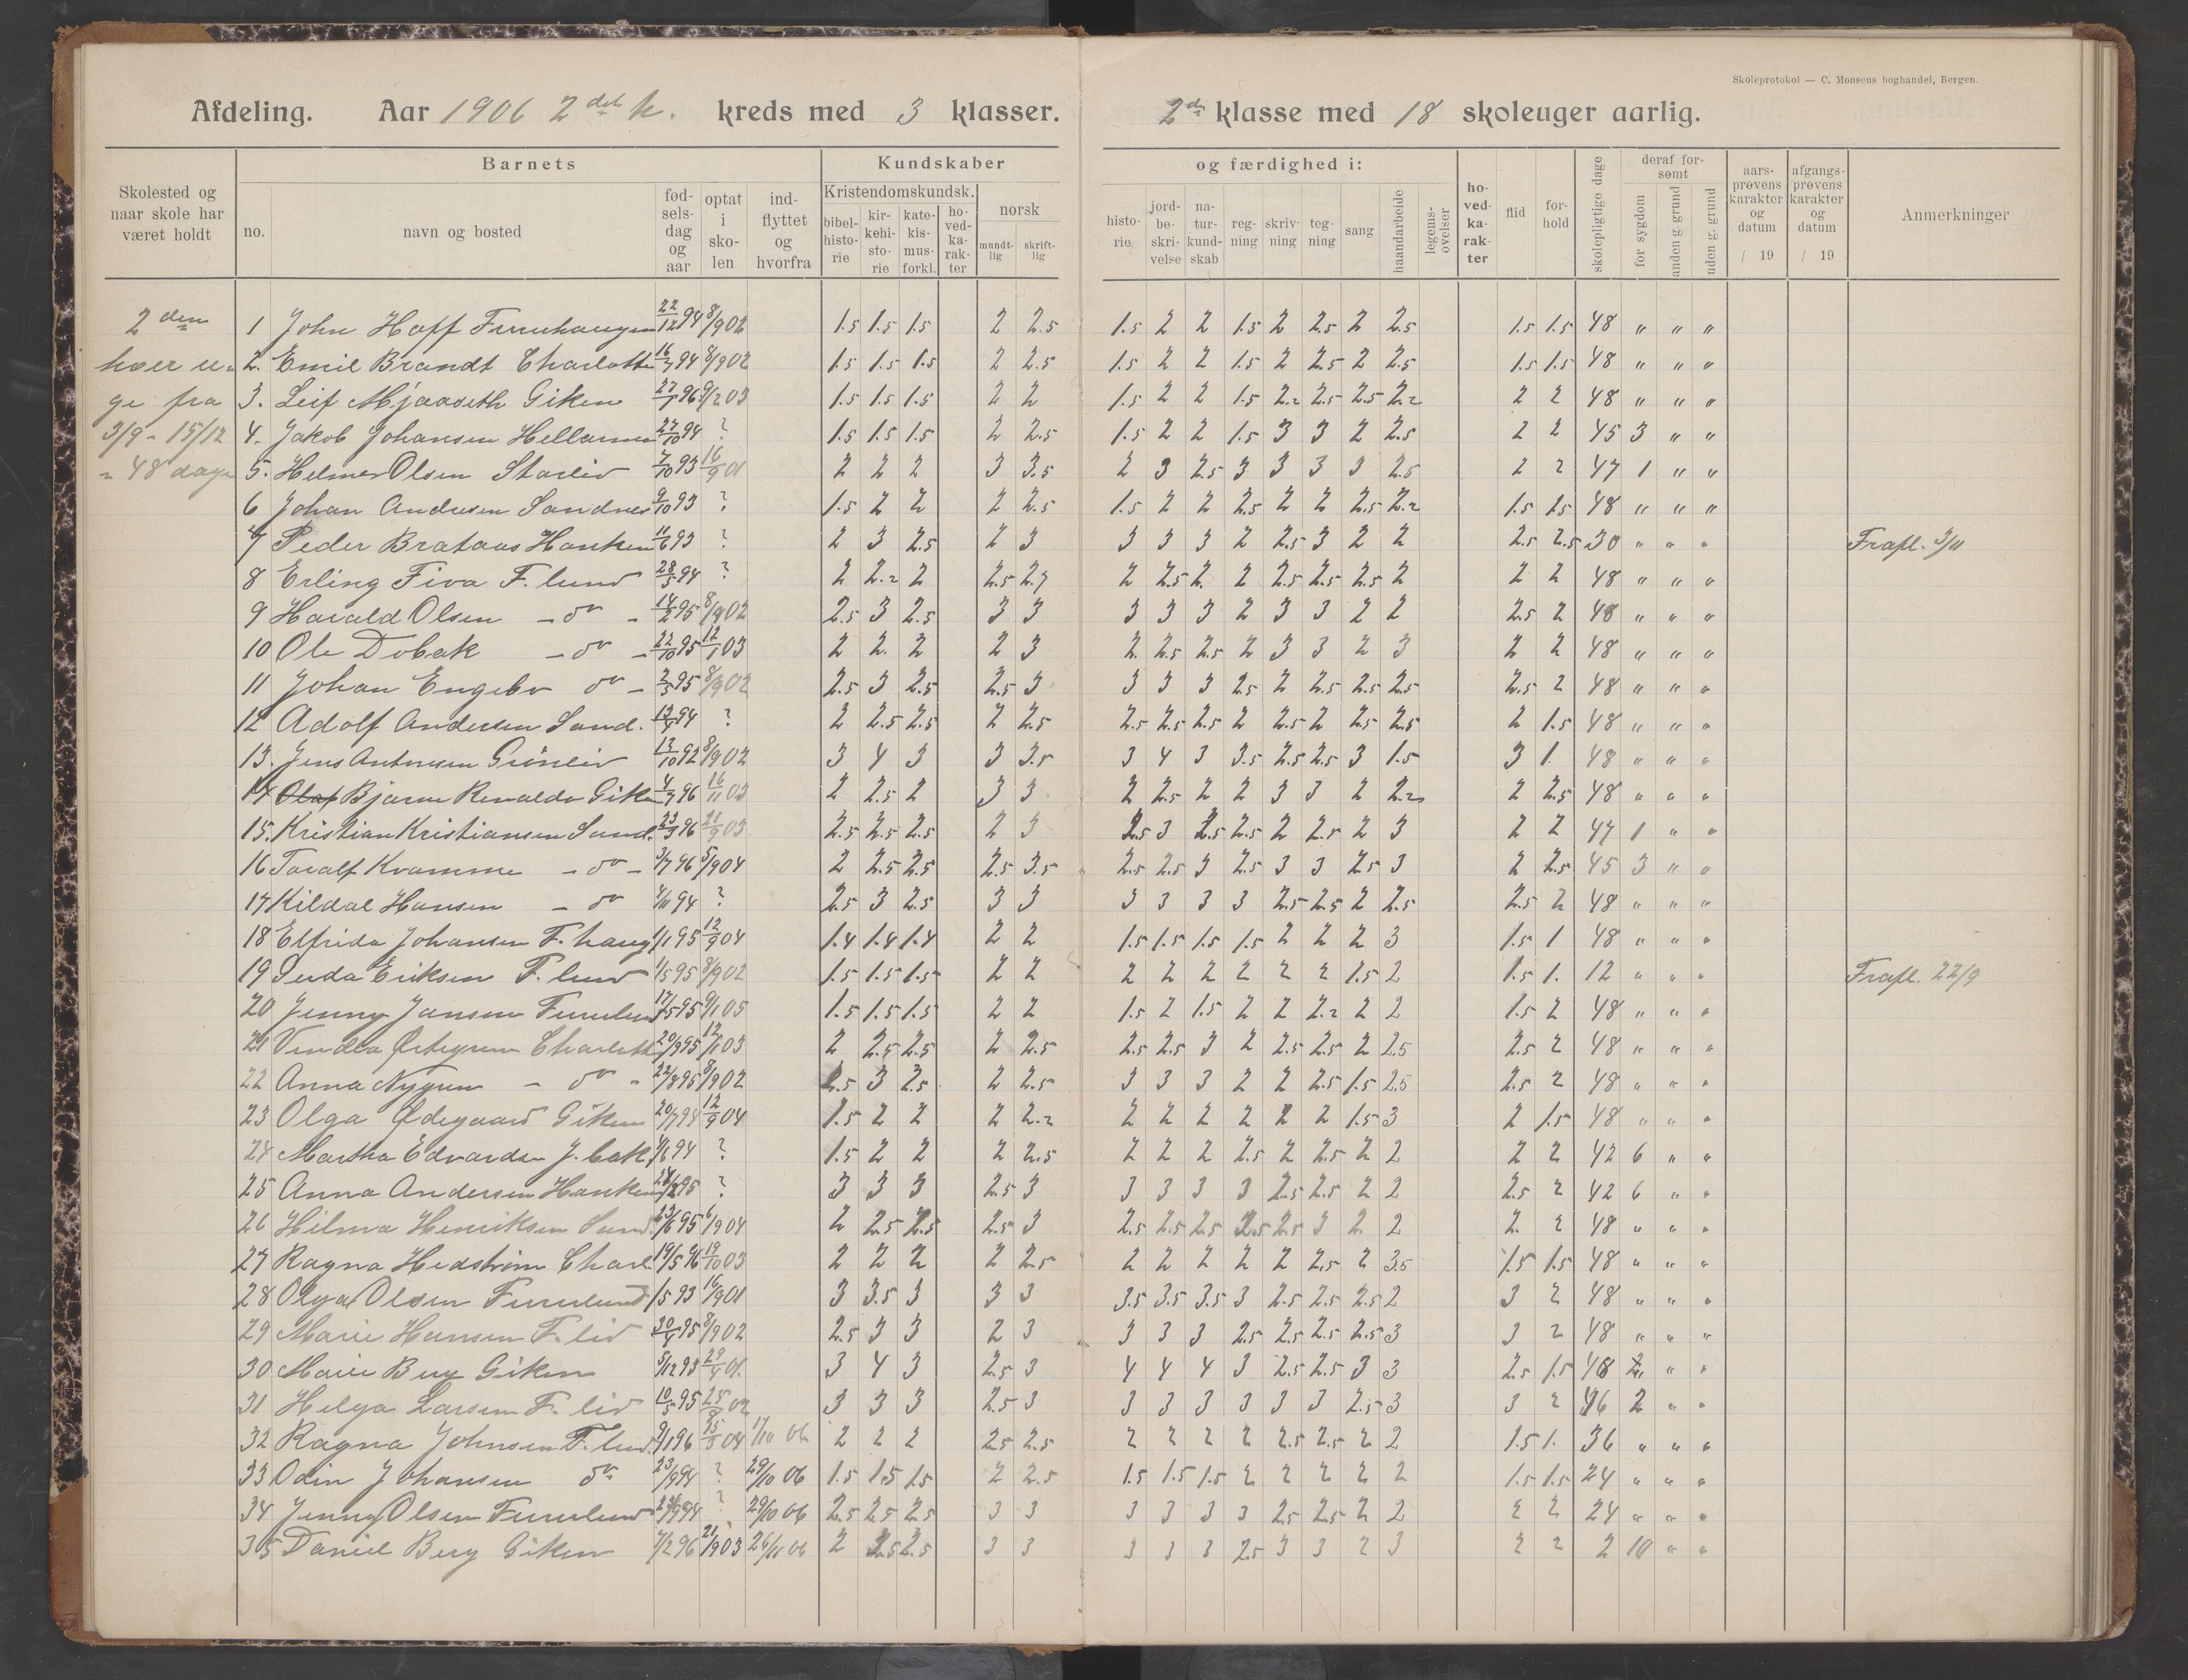 Skoleprotokol — C. Monsens boghandel, Bergen.
Afdeling. Aar 1906 2det h. kreds med 3 klasser. 2den klasse med 18 skoleuger aarlig.
Barnets Kundskaber og færdighed i:
Skolested og naar skole har været holdt
no. navn og bosted fødselsdag og aar optat i skolen indflyttet og hvorfra
Kristendomskundsk. bibelhistorie kirkehistorie katekismusforkl. hovedkarakter norsk mundtlig skriftlig
historie jordbeskrivelse naturkundskab regning skrivning tegning sang haandarbeide legemsøvelser hovedkarakter flid forhold skolepligtige dage
deraf forsømt for sygdom anden g. grund uden g. grund
aarsprøvens karakter og datum / 19 afgangsprøvens karakter og datum / 19 Anmerkninger
2den
hver u-
ge fra
3/9 - 15/12
= 48 dage
1 John Hoff Furuhaugen 22/12 94 8/9 02 1.5 1.5 1.5 2 2.5 1.5 2 2 1.5 2 2.5 2 2.5 1.5 1.5 48 " " "
2. Emil Brandt Charlotte 16/7 94 8/9 02 1.5 1.5 1.5 2 2.5 1.5 2 2 1.5 2 2.5 2 2.5 1.5 1.5 48 " " "
3. Leif Mjaaseth Giken 27/1 96 9/2 03 1.5 1.5 1.5 2 2 1.5 2 2 1.5 2.2 2.5 2.5 2.2 2 2 48 " " "
4. Jakob Johansen 27/10 94 ? 1.5 1.5 1.5 2 2.5 1.5 2 2 1.5 3 3 2 2.5 2 2 45 3 " "
5. Helmer Olsen 7/10 93 16/9 01 2 2 2 3 3.5 2 3 2.5 3 3 3 3 2.5 2 2 47 1 " "
6 Johan Andersen Sandnes 9/10 93 ? 1.5 2 2 2 2.5 1.5 2 2 2.5 2 2 2.5 2.2 1.5 1.5 48 " " "
7 Peder Brataas Hanken 11/6 93 ? 2 3 2.5 2 3 3 3 3 2 2.5 3 2 2 2.5 2.5 30 " " " Frafl. 3/11
8 Erling Fiva F. lund 28/5 94 ? 2 2.2 2 2.5 2.7 2 2.5 2. 2 2.5 2.5 2.5 2 2 2 48 " " "
9 Harald Olsen - do - 14/2 95 8/9 02 2.5 3 2.5 3 3 3 3 3 2 3 3 2 2 2.5 2 48 " " "
10 Ole Dobak - do - 22/10 95 12/1 03 2 2. 2 2 3 2. 2.5 2.5 2 3 3 2 3 2 2 48 " " "
11 Johan Engebo do - 2/5 95 8/9 02 2.5 3 2.5 2.5 3 3 3 3 2.5 2 2.5 2.5 2.5 2.5 2 48 " " "
12 Adolf Andersen Sand. 13/4 94 ? 2 2.5 2.5 2 2.5 2.5 2.5 2.5 2 2.5 2 2.5 2.5 2 1.5 48 " " "
13. Jens Antonsen Grønliv 12/10 92 8/9 02 3 4 3 3 3.5 3 4 3 3.5 2.5 2.5 3 1.5 3 1. 48 " " "
14 Bjarne Renaldo Giken 4/7 96 16/11 03 2 2.5 2 3 3 2 2.5 2 2 3 3 2 2.2 2 2.5 48 " " "
15. Kristian Kristiansen Sand. 23/3 96 21/9 03 2.5 2.5 2.5 2 3 2.5 3 2.5 2.5 2 2.5 2 3 2 2 47 1 " "
16 Toralf Kvamme - do - 3/7 96 5/9 04 2 2.5 2.5 2.5 3.5 2.5 2.5 3 2.5 3 3 2.5 3 2 2.5 45 3 " "
17 Kildal Hansen - do 4/11 94 ? 2.5 3 2.5 3 3 3 3 3 3 2.5 2.5 2 2.5 2.5 2 48 " " "
18 Elfrida Johansen F. haug 1/11 95 12/9 04 1.4 1.4 1.4 2 2 1.5 1.5 1.5 1.5 2 2 2 3 1.5 1 48 " " "
19 Eriksen F. lund 1/5 95 8/9 02 1.5 1.5 1.5 2 2 2 2 2 2 2 2 1.5 2 1.5 1. 12 " " " Frafl. 22/9
20 Jenny Jansen Furulund 17/5 95 9/1 05 1.5 1.5 1.5 2 2 1.5 2 1.5 2 2 2.2 2 2 1.5 2 48 " " "
21 Vendla Charlotte 20/9 95 12/1 03 2 2.5 2.5 2 2.5 2.5 2.5 3 2 2.5 2.5 2 2.5 2.5 2 48 " " "
22 Anna Nygren - do - 22/8 95 8/9 02 2.5 3 2.5 2 2.5 3 3 3 2 2 2.5 1.5 2.5 2.5 2 48 " " "
23 Olga Ødegaard Giken 20/7 94 12/9 04 1.5 2 2 2 2.2 2 2 2 2 2 2 1.5 3 2 1.5 48 " " "
24 Martha Edvardsen J. bak 1/6 94 ? 1.5 2 2 2 2.5 2 2 2 2.5 2 2.5 2 2 2 2 42 6 " "
25 Anna Andersen Hanken 95 ? 3 3 3 2.5 3 3 3 3 3 2.5 2.5 2 2 2.5 2 42 6 " "
26 Hilma Henriksen Sand. 23/6 95 6/9 04 2 2.5 2.5 2.5 3 2.5 2.5 2.5 2.5 2.5 3 2. 2 2. 2 48 " " "
27 Ragna Hedstrøm Charl. 19/5 96 19/10 03 2 2 2 2 2.5 2 2 2 2 2 2.5 2 3.5 1.5 1.5 48 " " "
28 Olga Olsen Furulund 1/5 93 16/9 01 3 3.5 3 3 3 3.5 3.5 3.5 3 2.5 2.5 2.5 2 3 2 48 " " "
29 Marie Hansen F. liv 30/4 95 8/9 02 2.5 3 3 2 3 3 3 3 2.5 2.5 2.5 2.5 3 3 2 48 " " "
30 Marie Berg Giken 5/12 93 29/4 01. 3 4 3 2.5 3 4 4 4 3 2.5 2.5 3 3 2.5 1.5 48 " "
31 Helga Larsen F. liv 10/5 95 02 3 3 3 2.5 3 3 3 3 3 3 3 2.5 3 3 2 46 2 " "
32 Ragna Johnsen F. lund. 9/1 96 04 1/10 06 2 2 2 2.5 2.5 2 2 2 2 2.5 2.5 2 2 1.5 1. 36 " " "
33 Odin Johansen do 23/9 94 ? 29/10 06 1.5 1.5 1.5 2 2.5 1.5 1.5 1.5 2 2 2 2 2 1.5 1.5 24 " " "
34 Jenny Olsen Furulund 94 ? 29/10 06 2.5 2.5 2.5 3 3 3 3 3 3 2.5 2.5 2 2 2 2 24 " " "
35 Daniel Berg Giken 7/2 96 21/9 03 26/11 06 2 2.5 2.5 3 3 3 3 3 2.5 3 3 2 3 2 2 2 10 " "